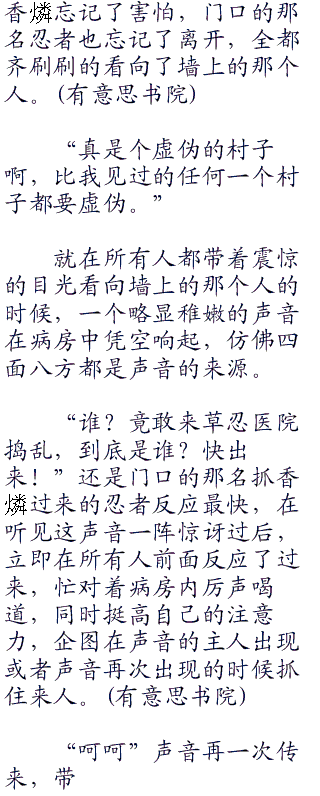 香燐忘记了害怕，门口的那
名忍者也忘记了离开，全都
齐刷刷的看向了墙上的那个
人。(有意思书院)
“真是个虚伪的村子
啊，比我见过的任何一个村
子都要虚伪。”
就在所有人都带着震惊
的目光看向墙上的那个人的
时候，一个略显稚嫩的声音
在病房中凭空响起，仿佛四
面八方都是声音的来源。
“谁？竟敢来草忍医院
捣乱，到底是谁？快出
来！”还是门口的那名抓香
燐过来的忍者反应最快，在
听见这声音一阵惊讶过后，
立即在所有人前面反应了过
来，忙对着病房内厉声喝
道，同时挺高自己的注意
力，企图在声音的主人出现
或者声音再次出现的时候抓
住来人。(有意思书院)
“呵呵”声音再一次传
来，带